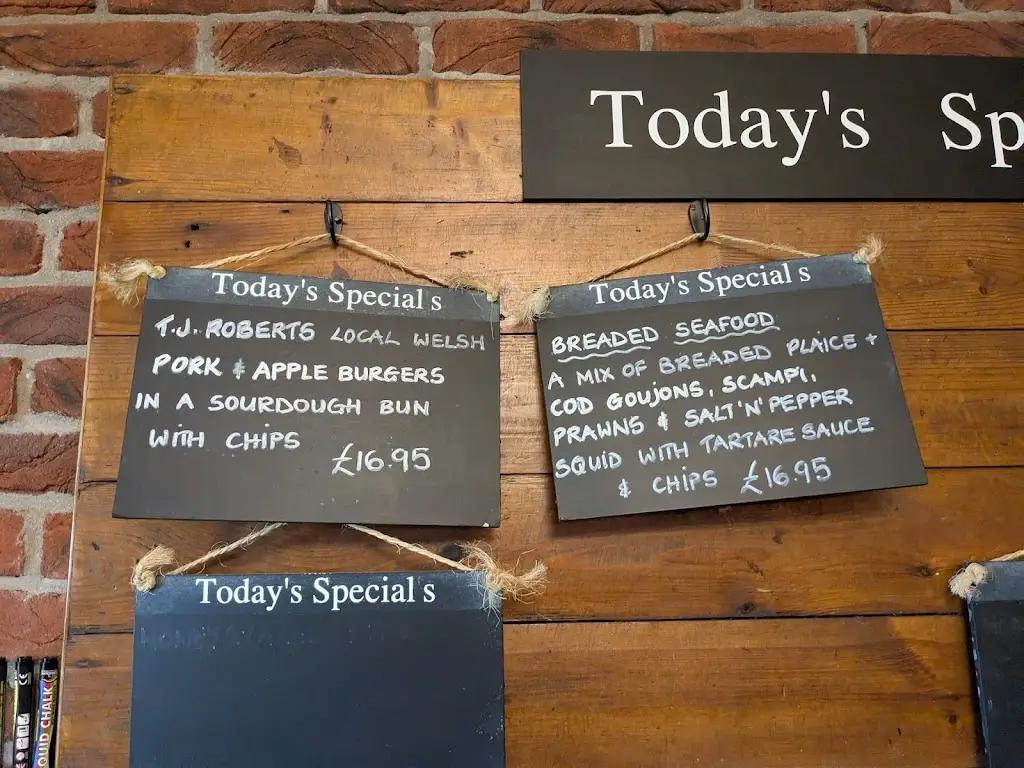 Today's Sp
Today's Specials
T.J. ROBERTS LOCAL WELSH
PORK & APPLE BURGERS
IN A SOURDOUGH BUN
WITH CHIPS
£16.95
Today's Specials
BREADED SEAFOOD
A MIX OF BREADED PLAICE +
COD GOUJONS, SCAMPI,
PRAWNS & SALT 'N' PEPPER
SQUID WITH TARTARE SAUCE
& CHIPS £16.95
Today's Specials
QUID CHALK
CE